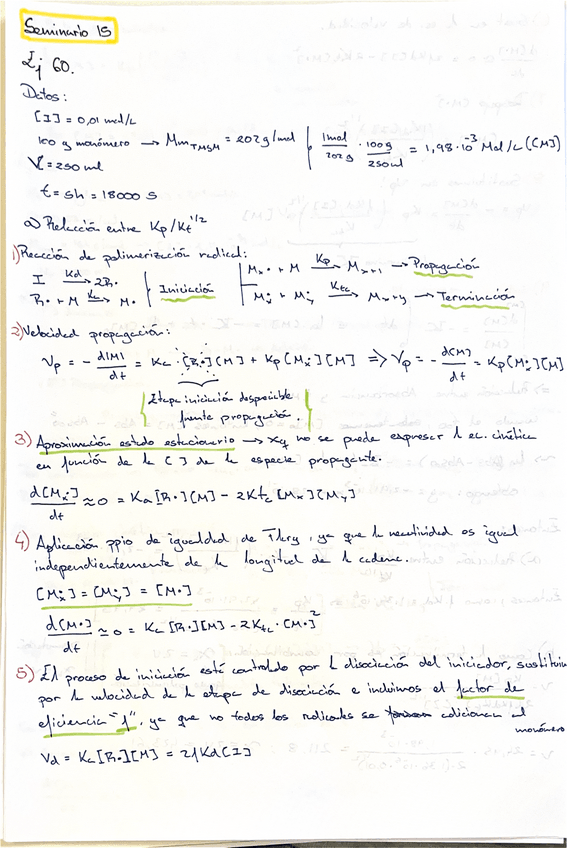 Seminario 15
Ej 60.
Datos:
[I] = 0,01 mol/L
100 g monómero → Mm TMSM = 202 g/mol | 1mol/202 g · 100g/250ml = 1,98·10⁻³ Mol/L ([M])
V = 250 ml
t = 5h = 18000 s
a) Relación entre Kp/Kt^1/2
1) Reacción de polimerización radical:
I —Kd→ 2R•
R• + M —Ka→ M• | Iniciación
Mx• + M —Kp→ Mx+1 → Propagación
Mx• + My• —Ktc→ Mx+y → Terminación
2) Velocidad propagación:
Vp = - d[M]/dt = Ka · [R•][M] + Kp[Mx•][M] ⇒ Vp = - d[M]/dt = Kp[Mx•][M]
Etapa iniciación despreciable
frente propagación.
3) Aproximación estado estacionario → xq no se puede expresar l ec. cinética
en función de la [ ] de la especie propagante.
d[Mx•]/dt ≈ 0 = Ka[R•][M] - 2Ktc[Mx][My]
4) Aplicación ppio de igualdad de Flory, ya que l reactividad es igual
independientemente de l longitud de l cadena.
[Mx•] = [My•] = [M•]
d[M•]/dt ≈ 0 = Ka[R•][M] - 2Ktc · [M•]²
5) El proceso de iniciación está controlado por l disociación del iniciador,
por l velocidad de l etapa de disociación e incluimos el factor de
eficiencia "f", ya que no todos los radicales se adicionan al
monómero
Vd = Ka[R•][M] = 2fKd[I]